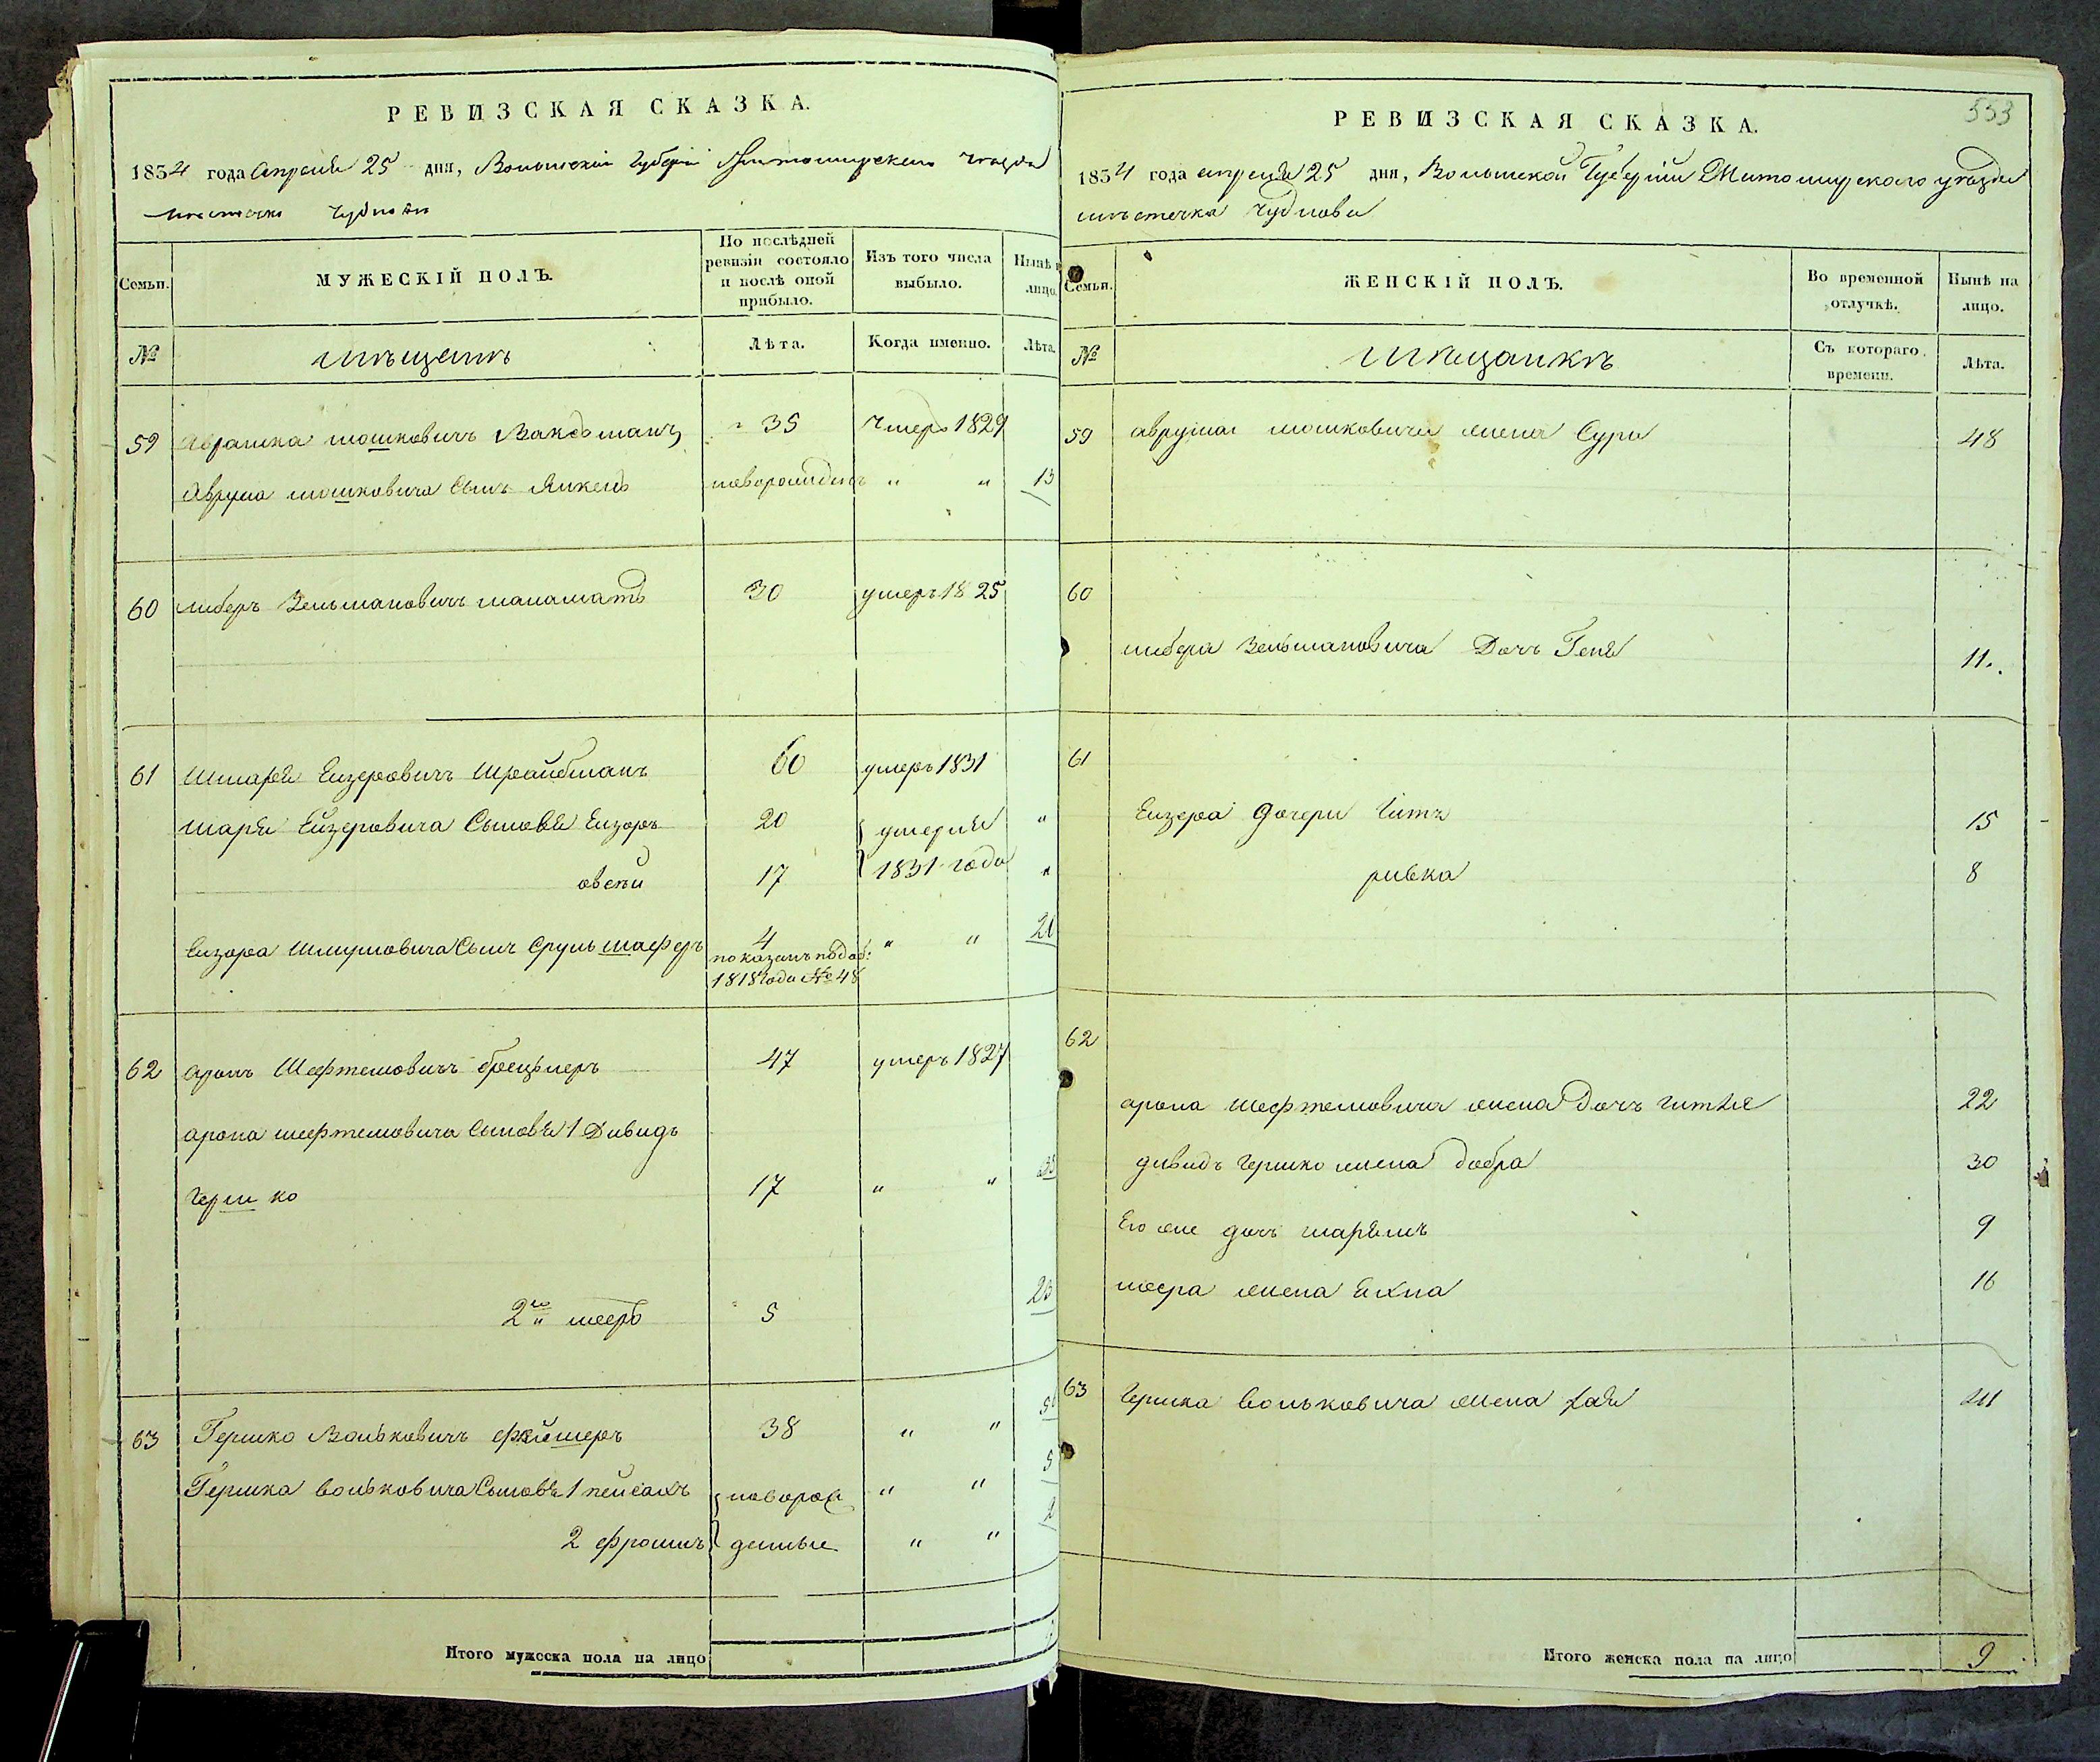 РЕВИЗСКАЯ СКАЗКА.
1834 года Апреля 25 дня, Волынской Губернiи Житомирскаго уезда
местечка Чуднова
Семьи.
МУЖЕСКIЙ ПОЛЪ.
По послѣдней ревизiи состояло и послѣ оной прибыло.
Изъ того числа выбыло.
Нынѣ на лицо.
№
мѣщанъ
Лѣта.
Когда именно.
Лѣта.
59 Аврумка мошковичъ Ваксманъ 35 Умеръ 1829
Аврума мошковича Сынъ Янкель новорожденъ " " 13
60 либеръ Зельмановичъ 30 умеръ 1825
61 Шмаря Еизеровичъ Шрайбманъ 60 умеръ 1831
шаря Ейзеровича Сыновья Еизоръ 20 { умерли "
овсей 17 { 1831 года "
Еизора Шмулиовича Сынъ Сруль шаферъ 4 " " 20
показанъ подоб:
1818 года № 48
62 аронъ Шефтеловичъ 47 умеръ 1827
арона шефтеловича Сыновья 1 Дивидъ
Гершко 17 " " 33
2й мееръ 5 23
63 Гершко Вольковичъ 38 " "
Гершка вольковича Сыновъя 1 пейсахъ { новорож " " 5
2 фроимъ { денные " " 2
Итого мужеска пола на лицо
553
РЕВИЗСКАЯ СКАЗКА.
1834 года апреля 25 дня, Волынской Губернiи Житомирскаго уѣзда
мѣстечка Чуднова
Семьи.
ЖЕНСКIЙ ПОЛЪ.
Во временной отлучкѣ.
Нынѣ на лицо.
№
мѣщанкъ
Съ котораго времени.
Лѣта.
59 аврума мошковича жена Сура 48
60
либера Зельмановича Дочь Геня 11.
61
Еизера дочери Гитъ 15
ривка 8
62
арона шефтеловича жена дочь гитля 22
дивидъ гершко жена добра 30
Его же дочь марямъ 9
меера жена Бихна 16
63 Гершка вольковича жена хая
Итого женска пола на лицо 9